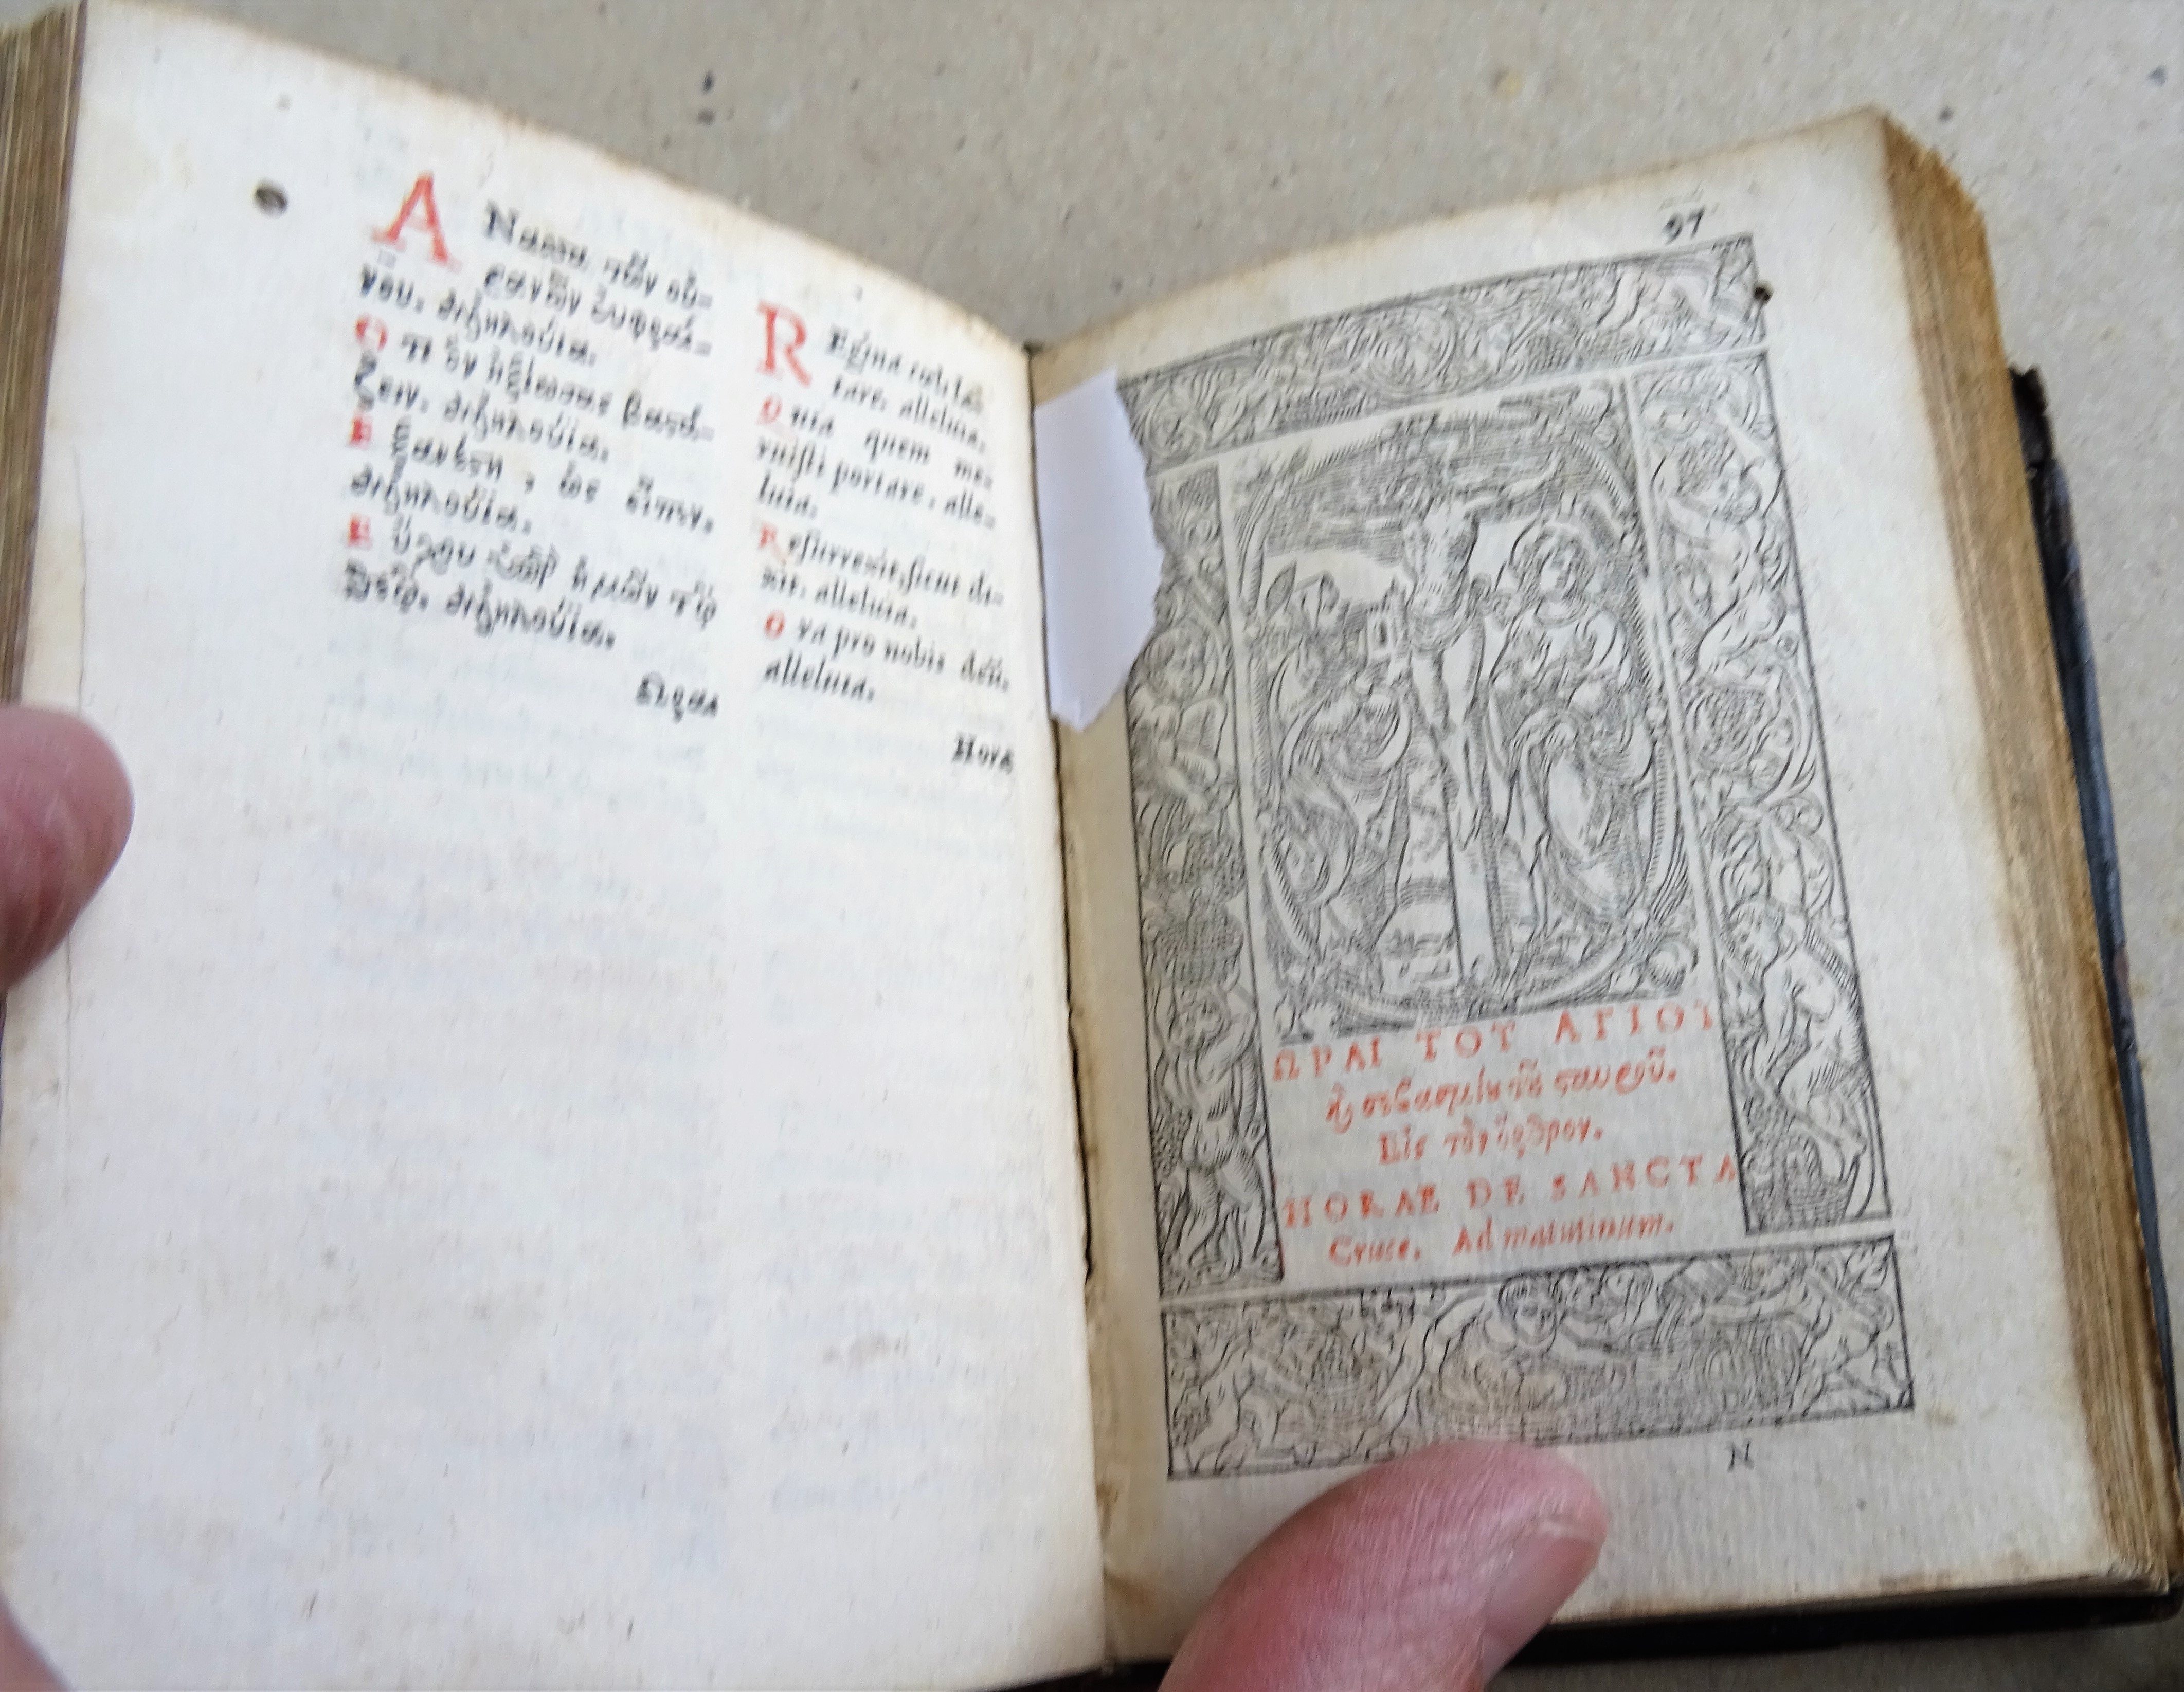 ΑΝασσα τῶν οὐ-
ρανῶν εὐφραί-
νου. ἀλληλούϊα.
Οτι ὃν ἠξίωσας βαστά-
ζειν. ἀλληλούϊα.
Εξανέστη, ὡς εἶπεν.
ἀλληλούϊα.
Εὔχου ὑπὲρ ἡμῶν τῷ
θεῷ. ἀλληλούϊα.
Ωραι
REgina cœli læ-
tare, alleluia.
Quia quem me-
ruisti portare, alle-
luia.
Resurrexit, sicut di-
xit. alleluia.
Ora pro nobis deũ.
alleluia.
Horæ
97
ΩΡΑΙ ΤΟΥ ΑΓΙΟΥ
ϗ σεβασμίου σταυροῦ.
Εἰς τὸν ὄρθρον.
HORAE DE SANCTA
Cruce. Ad matutinum.
N